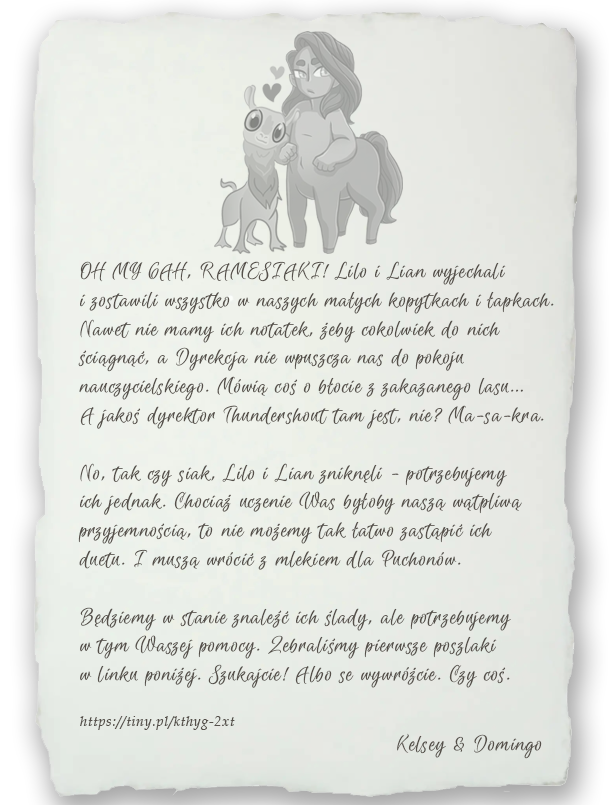 OH MY GAH, RAMESIAKI! Lilo i Lian wyjechali
i zostawili wszystko w naszych małych kopytkach i łapkach.
Nawet nie mamy ich notatek, żeby cokolwiek do nich
ściągnąć, a Dyrekcja nie wpuszcza nas do pokoju
nauczycielskiego. Mówią coś o błocie z zakazanego lasu...
A jakoś dyrektor Thundershout tam jest, nie? Ma-sa-kra.
No, tak czy siak, Lilo i Lian zniknęli - potrzebujemy
ich jednak. Chociaż uczenie Was byłoby naszą wątpliwą
przyjemnością, to nie możemy tak łatwo zastąpić ich
duetu. I muszą wrócić z mlekiem dla Puchonów.
Będziemy w stanie znaleźć ich ślady, ale potrzebujemy
w tym Waszej pomocy. Zebraliśmy pierwsze poszlaki
w linku poniżej. Szukajcie! Albo se wywróżcie. Czy coś.
https://tiny.pl/kthyg-2xt
Kelsey & Domingo